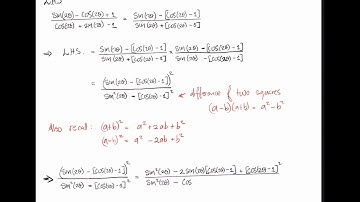 LHS
Sin(2θ) - Cos(2θ) + 1 / Cos(2θ) + Sin(2θ) - 1 = Sin(2θ) - [Cos(2θ) - 1] / Sin(2θ) + [Cos(2θ) - 1]
⇒ LHS = Sin(2θ) - [Cos(2θ) - 1] / Sin(2θ) + [Cos(2θ) - 1] × Sin(2θ) - [Cos(2θ) - 1] / Sin(2θ) - [Cos(2θ) - 1]
= (Sin(2θ) - [Cos(2θ) - 1])² / Sin²(2θ) - [Cos(2θ) - 1]² ← difference of two squares
(a-b)(a+b) = a² - b²
Also recall: (a+b)² = a² + 2ab + b²
(a-b)² = a² - 2ab + b²
⇒ (Sin(2θ) - [Cos(2θ) - 1])² / Sin²(2θ) - [Cos(2θ) - 1]² = Sin²(2θ) - 2Sin(2θ)[Cos(2θ) - 1] + [Cos(2θ) - 1]² / Sin²(2θ) - Cos